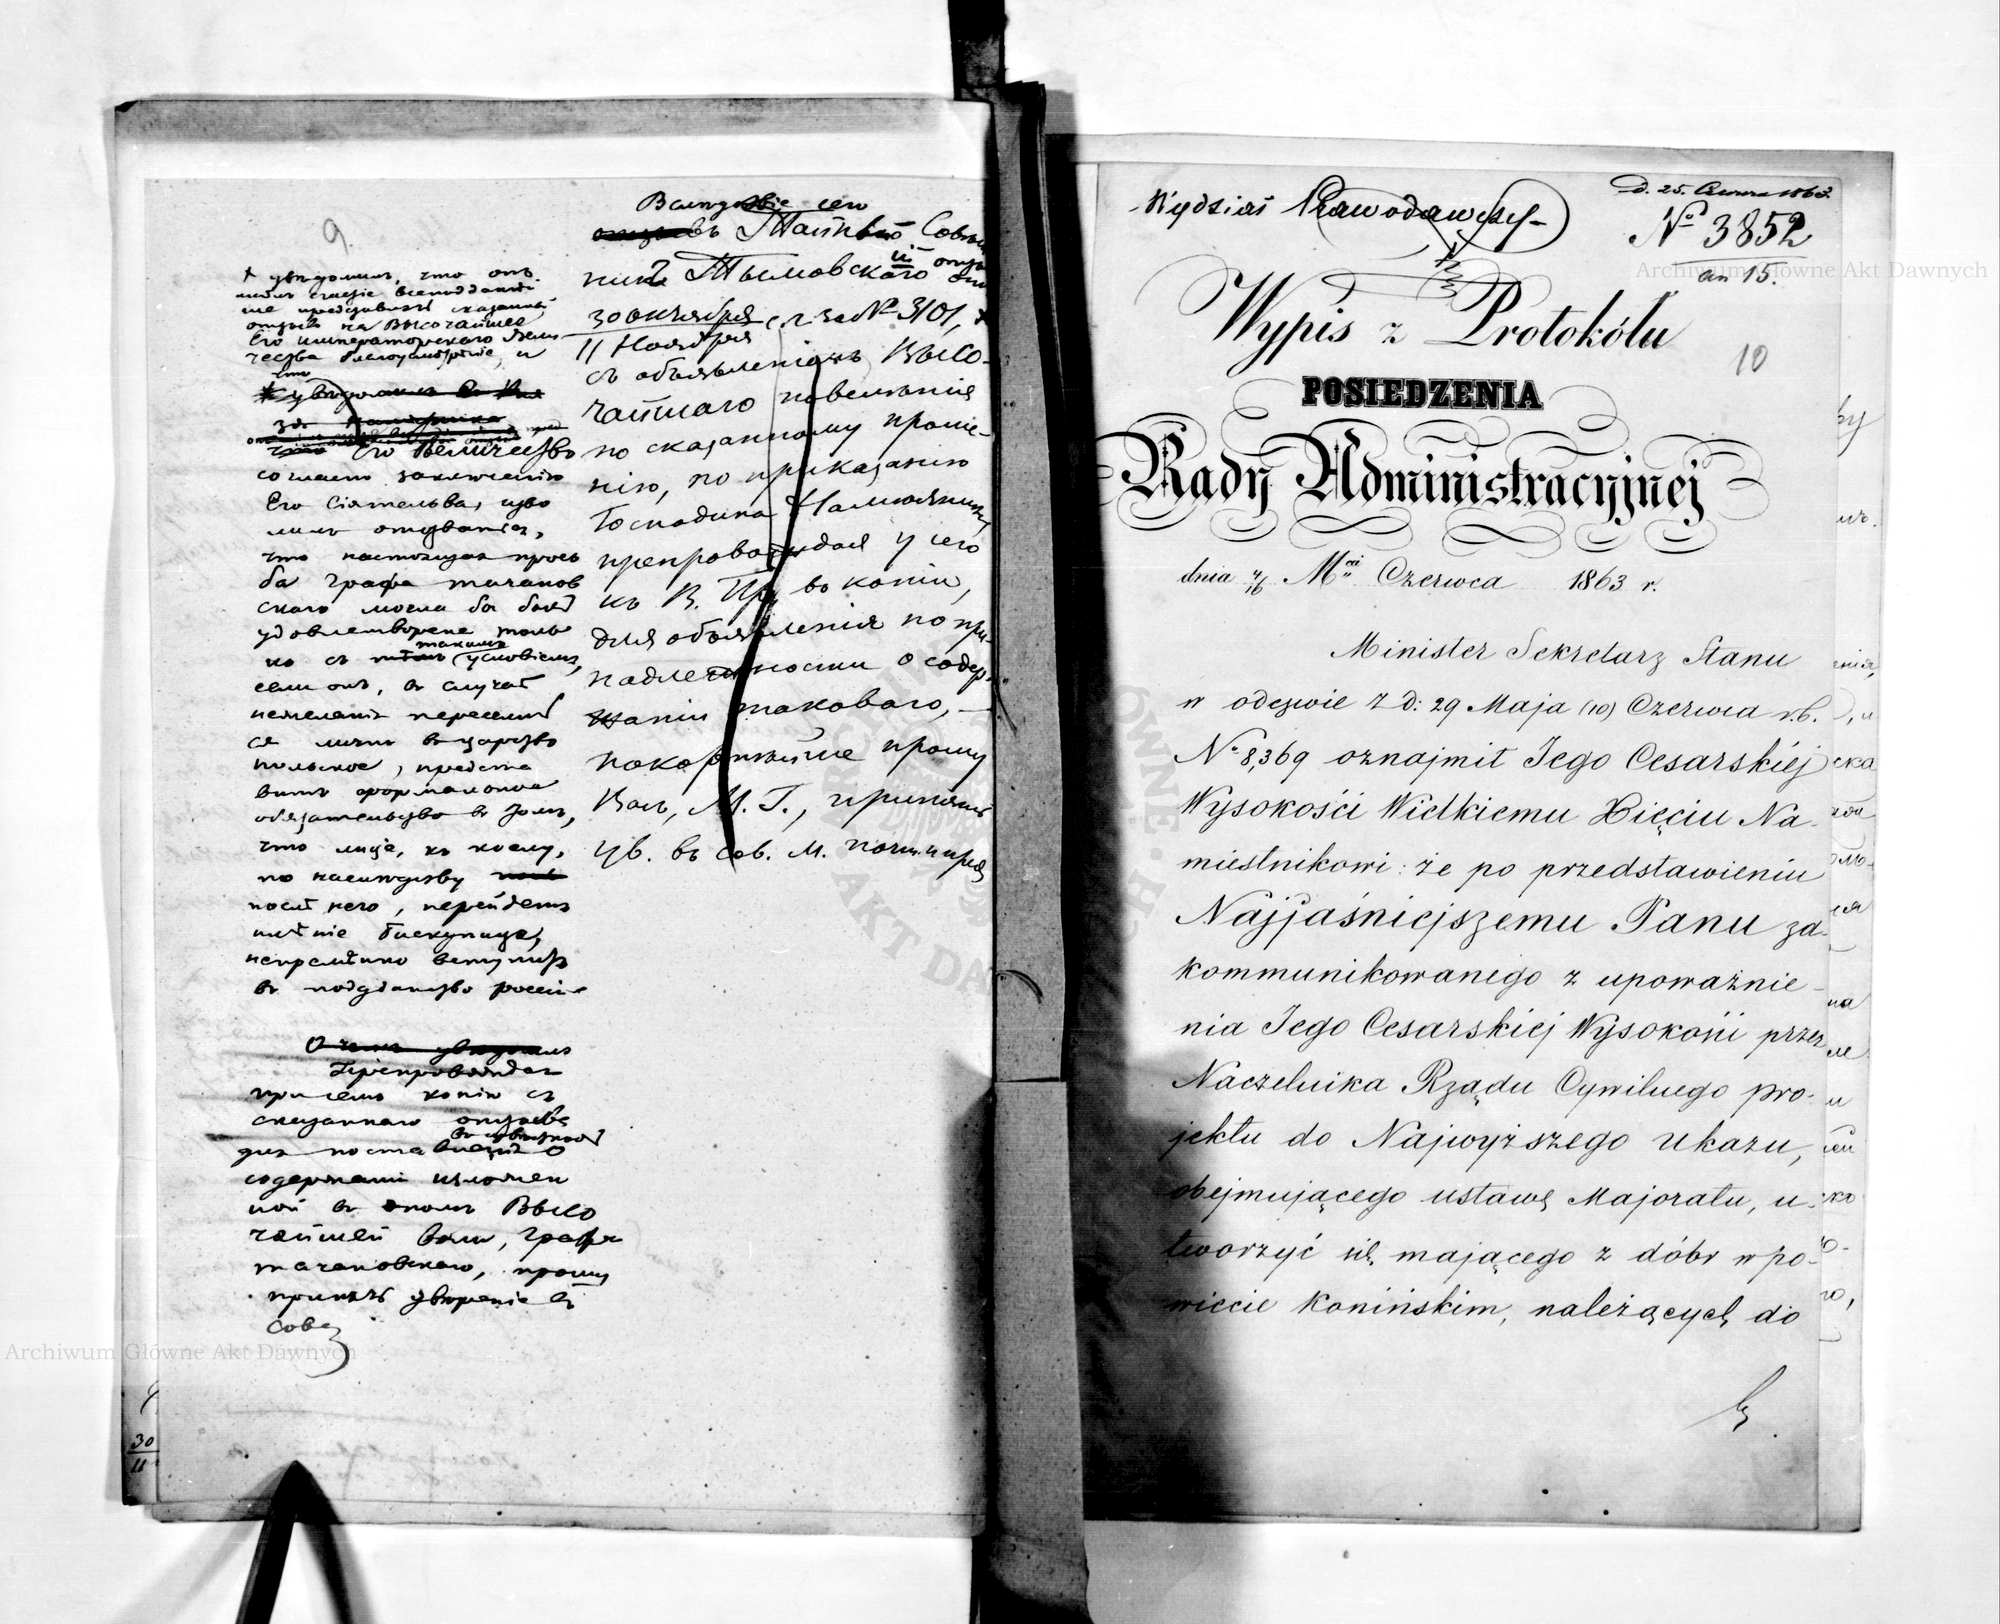 9.
+ увѣдомилъ, что онъ
имѣлъ счастіе всеподданнѣй
ше представить сказанный
отзывъ на Высочайшее
Его Императорскаго Вели-
чества благоусмотрѣніе, и
что
Его Величество
согласно заключенію
Его Сіятельства, изво
лилъ отозваться,
что настоящая прось
ба графа Тачанов
скаго могла бы быть
удовлетворена толь
ко съ такимъ условіемъ,
если онъ, въ случаѣ
нежеланія переселить
ся лично въ Царство
Польское, предста
витъ формальное
обязательство въ томъ,
что лице, къ коему,
по наслѣдству
послѣ него, перейдетъ
имѣніе Бискупице,
непремѣнно вступитъ
въ подданство россій-
Препровождая
при семъ копію съ
сказаннаго отзыва
для поставленія въ извѣстность о
содержаніи изложен
ной въ ономъ Высо
чайшей воли, графа
Тачановскаго, прошу
принять увѣреніе въ
сове
30
11
Вслѣдствіе сего
Тайный Совѣт
никъ Тымовскій
30 октября с. г. за № 3101, +
11 Ноября
съ объявленіемъ Высо-
чайшаго повелѣнія
по сказанному проше-
нію, по приказанію
Господина Намѣстника,
препровождая у сего
къ В. Пр. въ копіи,
для объявленія по при-
надлежности о содер-
жаніи таковаго,—
покорнѣйше прошу
Васъ, М. Г., принять
ув. въ сов. м. почт. и пред
Wydział Prawodawczy-
d. 25. Czerwca 1863.
№ 3852
an 15.
Wypis z Protokółu
10
POSIEDZENIA
Rady Administracyjnej
dnia 4/16 Mca Czerwca 1863 r.
Minister Sekretarz Stanu
w odezwie z d: 29 Maja (10) Czerwca r.b.
№ 8,369 oznajmił Jego Cesarskiéj
Wysokości Wielkiemu Xięciu Na-
miestnikowi: że po przedstawieniu
Najjaśniejszemu Panu za-
kommunikowanego z upoważnie-
nia Jego Cesarskiej Wysokości przez
Naczelnika Rządu Cywilnego pro-
jektu do Najwyższego ukazu,
obejmującego ustawę Majoratu, u-
tworzyć się mającego z dóbr w po-
wiecie Konińskim, należących do
Archiwum Główne Akt Dawnych
Archiwum Główne Akt Dawnych